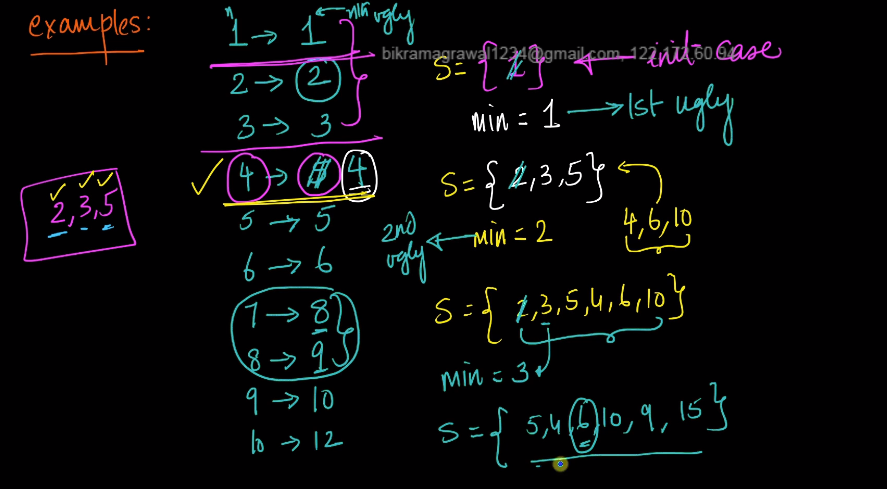 examples:
n nth ugly
1 → 1
2 → 2
3 → 3
4 → 4
5 → 5
6 → 6
7 → 8
8 → 9
9 → 10
10 → 12
2, 3, 5
bikramagrawal1234@gmail.com 122.172.60.94
S = { 1 } ← init case
min = 1 → 1st ugly
S = { 2, 3, 5 }
4, 6, 10
min = 2
2nd ugly
S = { 2, 3, 5, 4, 6, 10 }
min = 3
S = { 5, 4, 6, 10, 9, 15 }